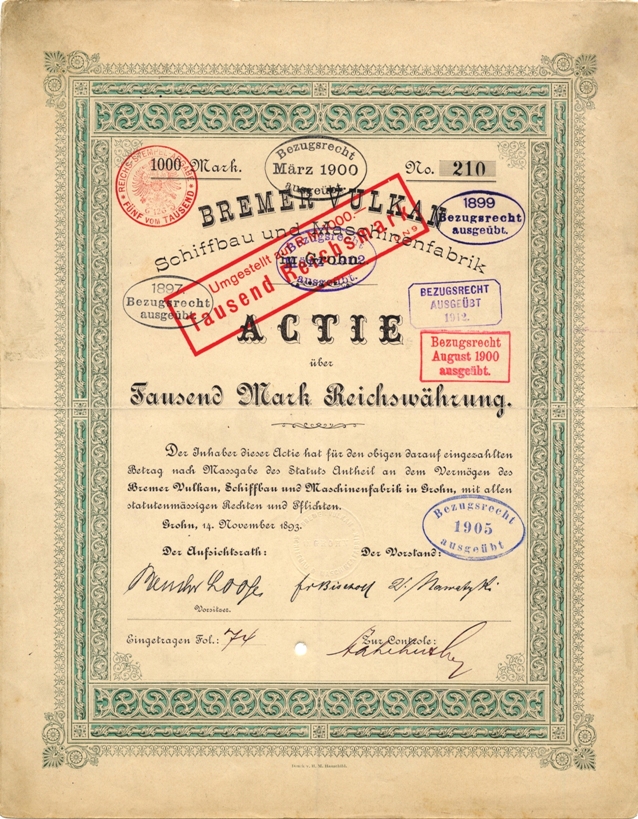 1000 Mark.
No. 210
REICHS-STEMPELABGABE
FÜNF VOM TAUSEND
Bezugsrecht
März 1900
ausgeübt.
BREMER VULKAN
1899
Bezugsrecht
ausgeübt.
Schiffbau und Maschinenfabrik
in Grohn.
Umgestellt auf RM 1000.—
Tausend Reichsmark
Bezugsrecht
ausgeübt.
1897
Bezugsrecht
ausgeübt
BEZUGSRECHT
AUSGEÜBT
1912.
ACTIE
Bezugsrecht
August 1900
ausgeübt.
über
Tausend Mark Reichswährung.
Der Inhaber dieser Actie hat für den obigen darauf eingezahlten
Betrag nach Massgabe des Statuts Antheil an dem Vermögen des
Bremer Vulkan, Schiffbau und Maschinenfabrik in Grohn, mit allen
statutenmässigen Rechten und Pflichten.
Grohn, 14. November 1893.
Bezugsrecht
1905
ausgeübt
Der Aufsichtsrath:
Der Vorstand:
Vorsitzer.
Eingetragen Fol.: 74
Zur Controle: